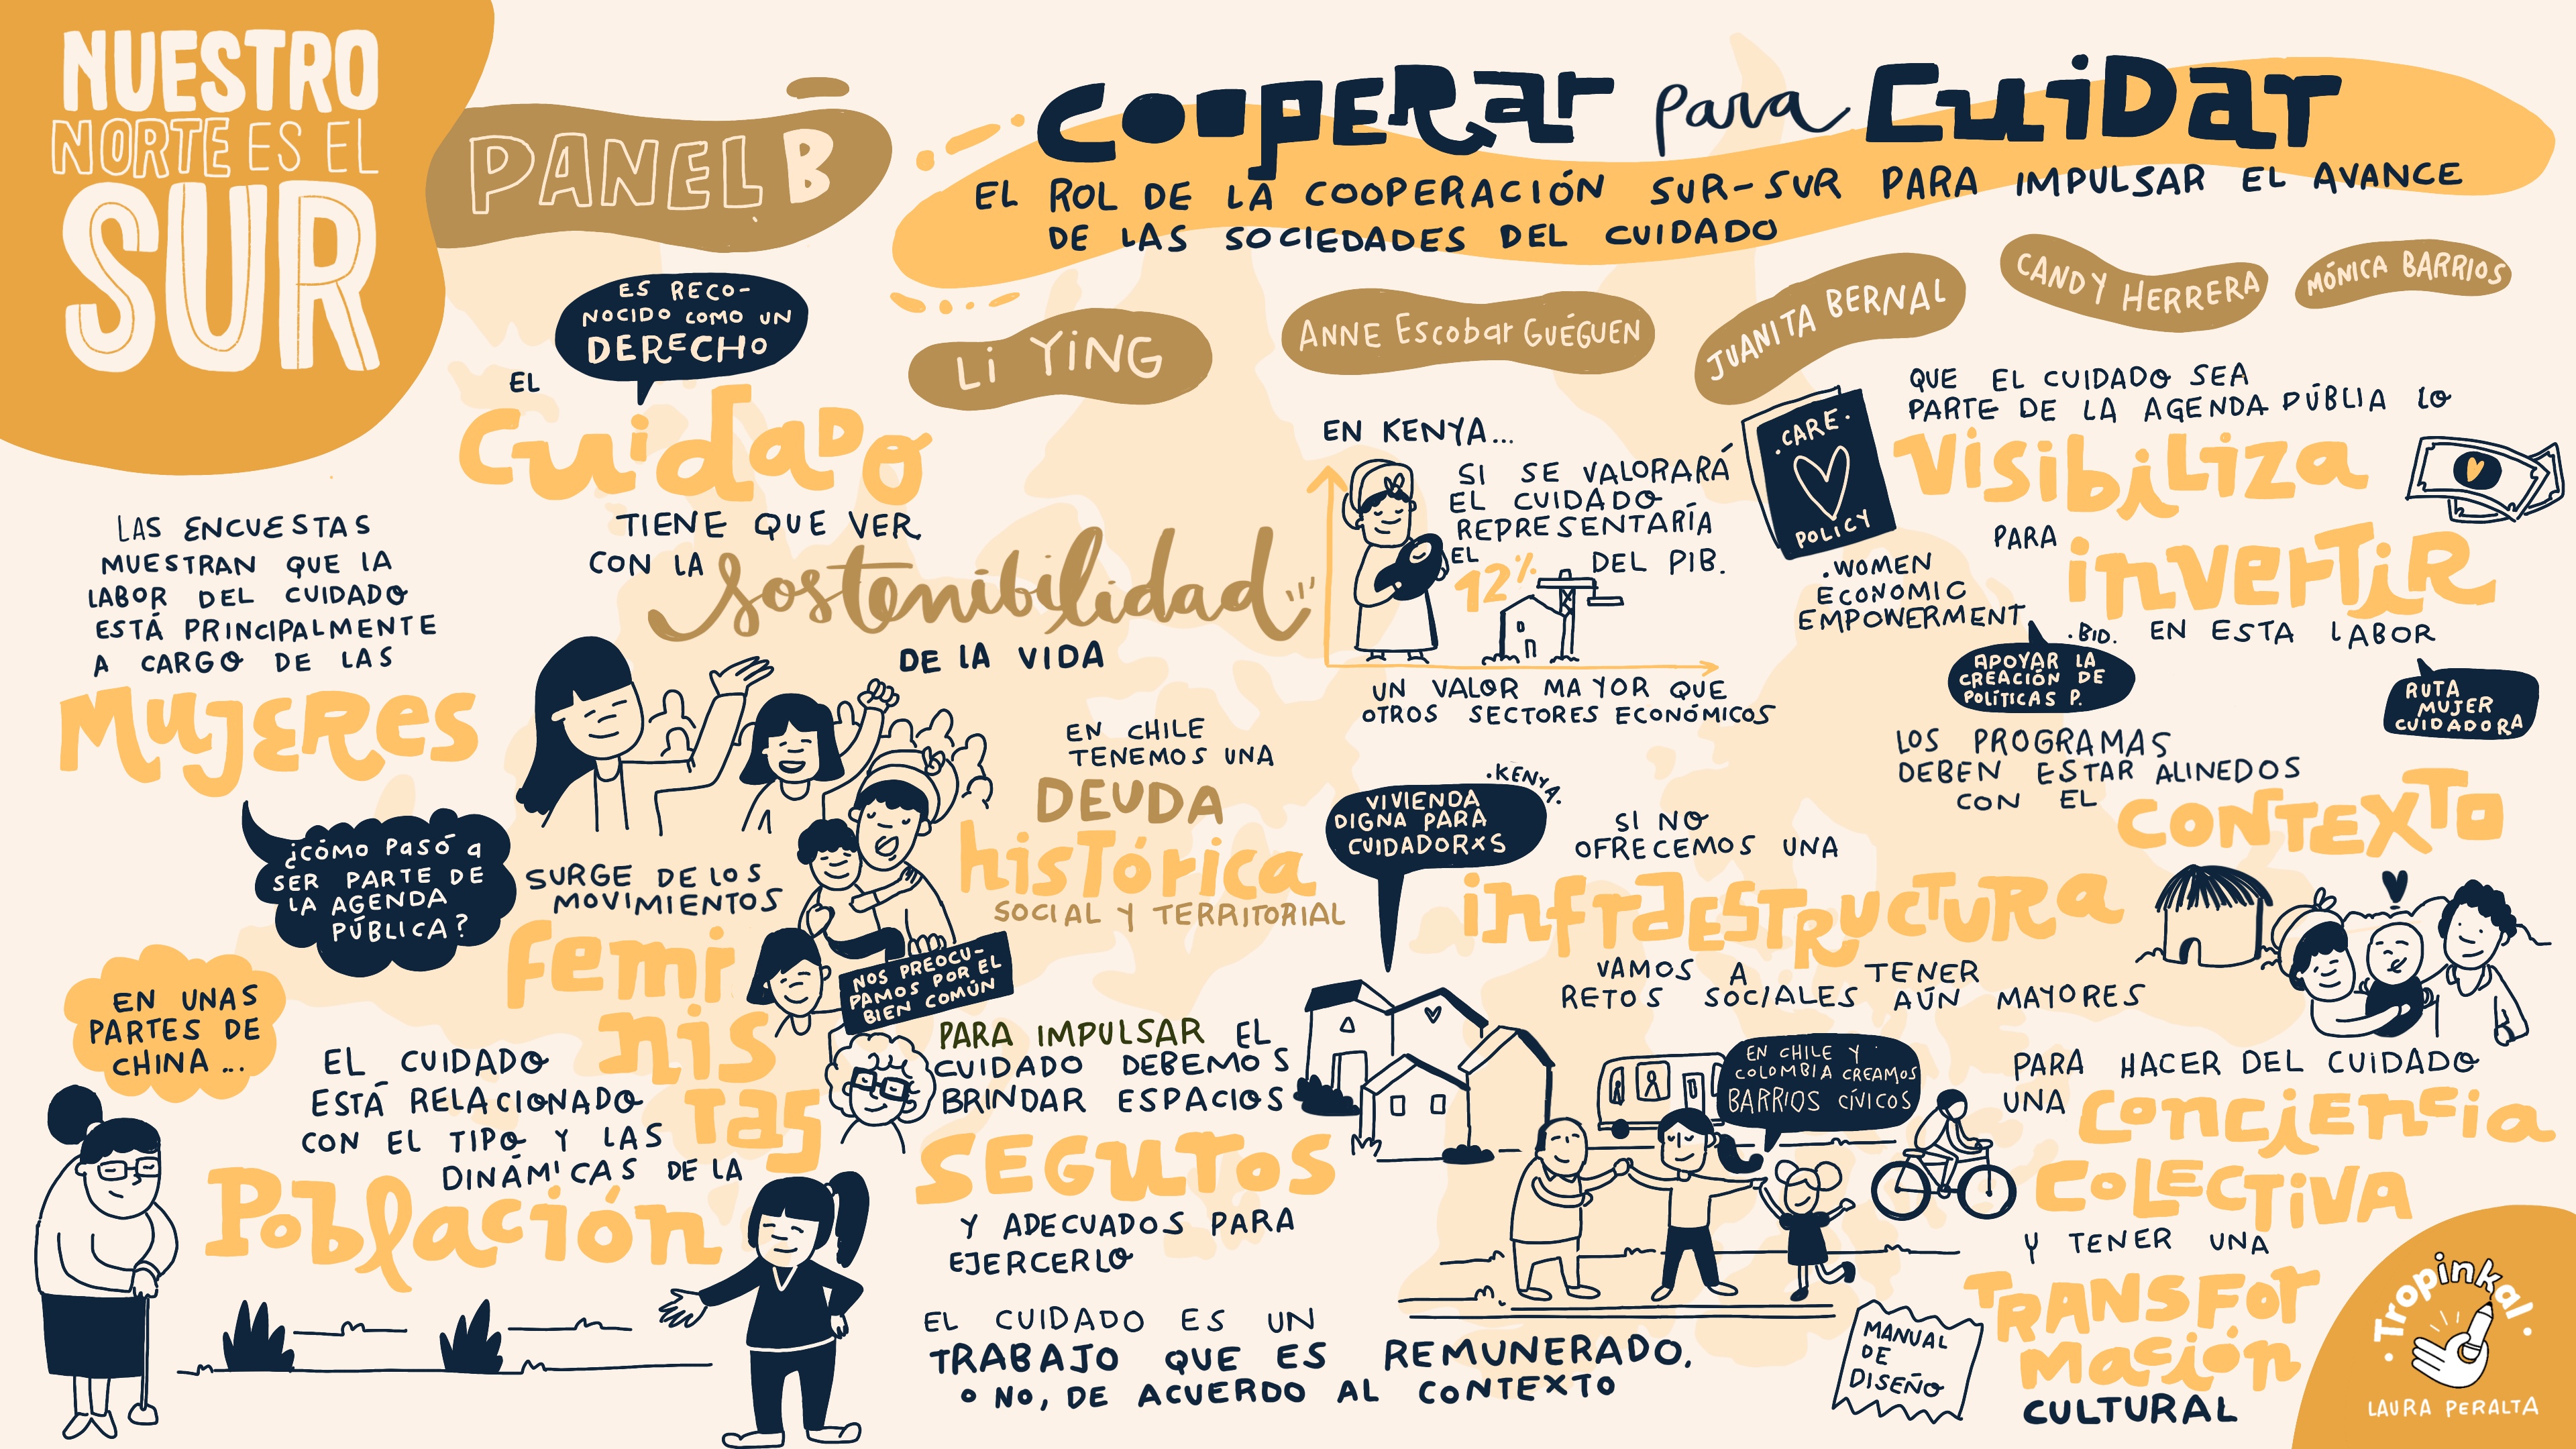 NUESTRO
NORTE ES EL
SUR
PANEL B
COOPERAR para CUIDAR
EL ROL DE LA COOPERACIÓN SUR-SUR PARA IMPULSAR EL AVANCE
DE LAS SOCIEDADES DEL CUIDADO
LI YING
ANNE Escobar GUÉGUEN
JUANITA BERNAL
CANDY HERRERA
MÓNICA BARRIOS
ES RECO-
NOCIDO COMO UN
DERECHO
EL
CUIDADO
TIENE QUE VER
CON LA
Sostenibilidad
DE LA VIDA
LAS ENCUESTAS
MUESTRAN QUE LA
LABOR DEL CUIDADO
ESTÁ PRINCIPALMENTE
A CARGO DE LAS
MUJERES
¿CÓMO PASÓ a
SER PARTE DE
LA AGENDA
PÚBLICA?
SURGE DE LOS
MOVIMIENTOS
Femi
nis
Tas
NOS PREOCU-
PAMOS POR EL
BIEN COMÚN
EN UNAS
PARTES DE
CHINA...
EL CUIDADO
ESTÁ RELACIONADO
CON EL TIPO Y LAS
DINÁMICAS DE LA
Población
EN CHILE
TENEMOS UNA
DEUDA
hisTórica
SOCIAL Y TERRITORIAL
PARA IMPULSAR EL
CUIDADO DEBEMOS
BRINDAR ESPACIOS
SEGUTOS
Y ADECUADOS PARA
EJERCERLO
EL CUIDADO ES UN
TRABAJO QUE ES REMUNERADO,
O NO, DE ACUERDO AL CONTEXTO
EN KENYA...
SI SE VALORARÁ
EL CUIDADO
REPRESENTARÍA
EL 12% DEL PIB.
UN VALOR MAYOR QUE
OTROS SECTORES ECONÓMICOS
.KENYA.
VIVIENDA
DIGNA PARA
CUIDADORXS
SI NO
OFRECEMOS UNA
infraESTRUCTURA
VAMOS A TENER
RETOS SOCIALES AÚN MAYORES
EN CHILE Y
COLOMBIA CREAMOS
BARRIOS CÍVICOS
.CARE.
POLICY
.WOMEN
ECONOMIC
EMPOWERMENT
QUE EL CUIDADO SEA
PARTE DE LA AGENDA PÚBLIA LO
VisibiLiza
PARA
inVERTiR
EN ESTA LABOR
.BID.
APOYAR LA
CREACIÓN DE
POLÍTICAS P.
RUTA
MUJER
CUIDADORA
LOS PROGRAMAS
DEBEN ESTAR ALINEDOS
CON EL
CONTEXTO
PARA HACER DEL CUIDADO
UNA CONCiENCia
COLECTiVA
Y TENER UNA
TRANSFOr
Mación
CULTURAL
MANUAL
DE
DISEÑO
.Tropinkal.
LAURA PERALTA